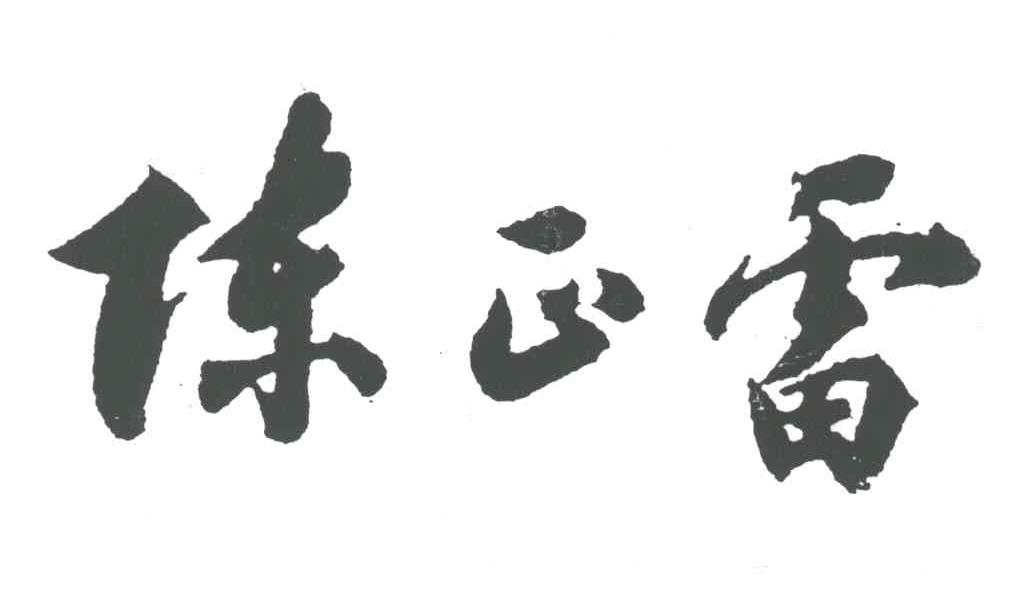 陈正雷